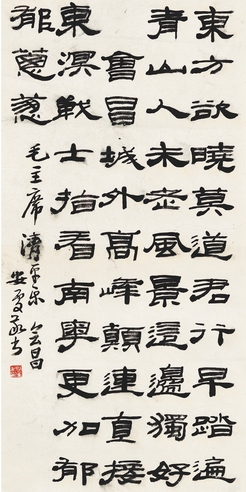 東方欲曉莫道君行早踏遍
青山人未老風景這邊獨好
會昌城外高峰顛連直接
東溟戰士指看南粵更加郁
郁蔥蔥
毛主席 清平乐 会昌